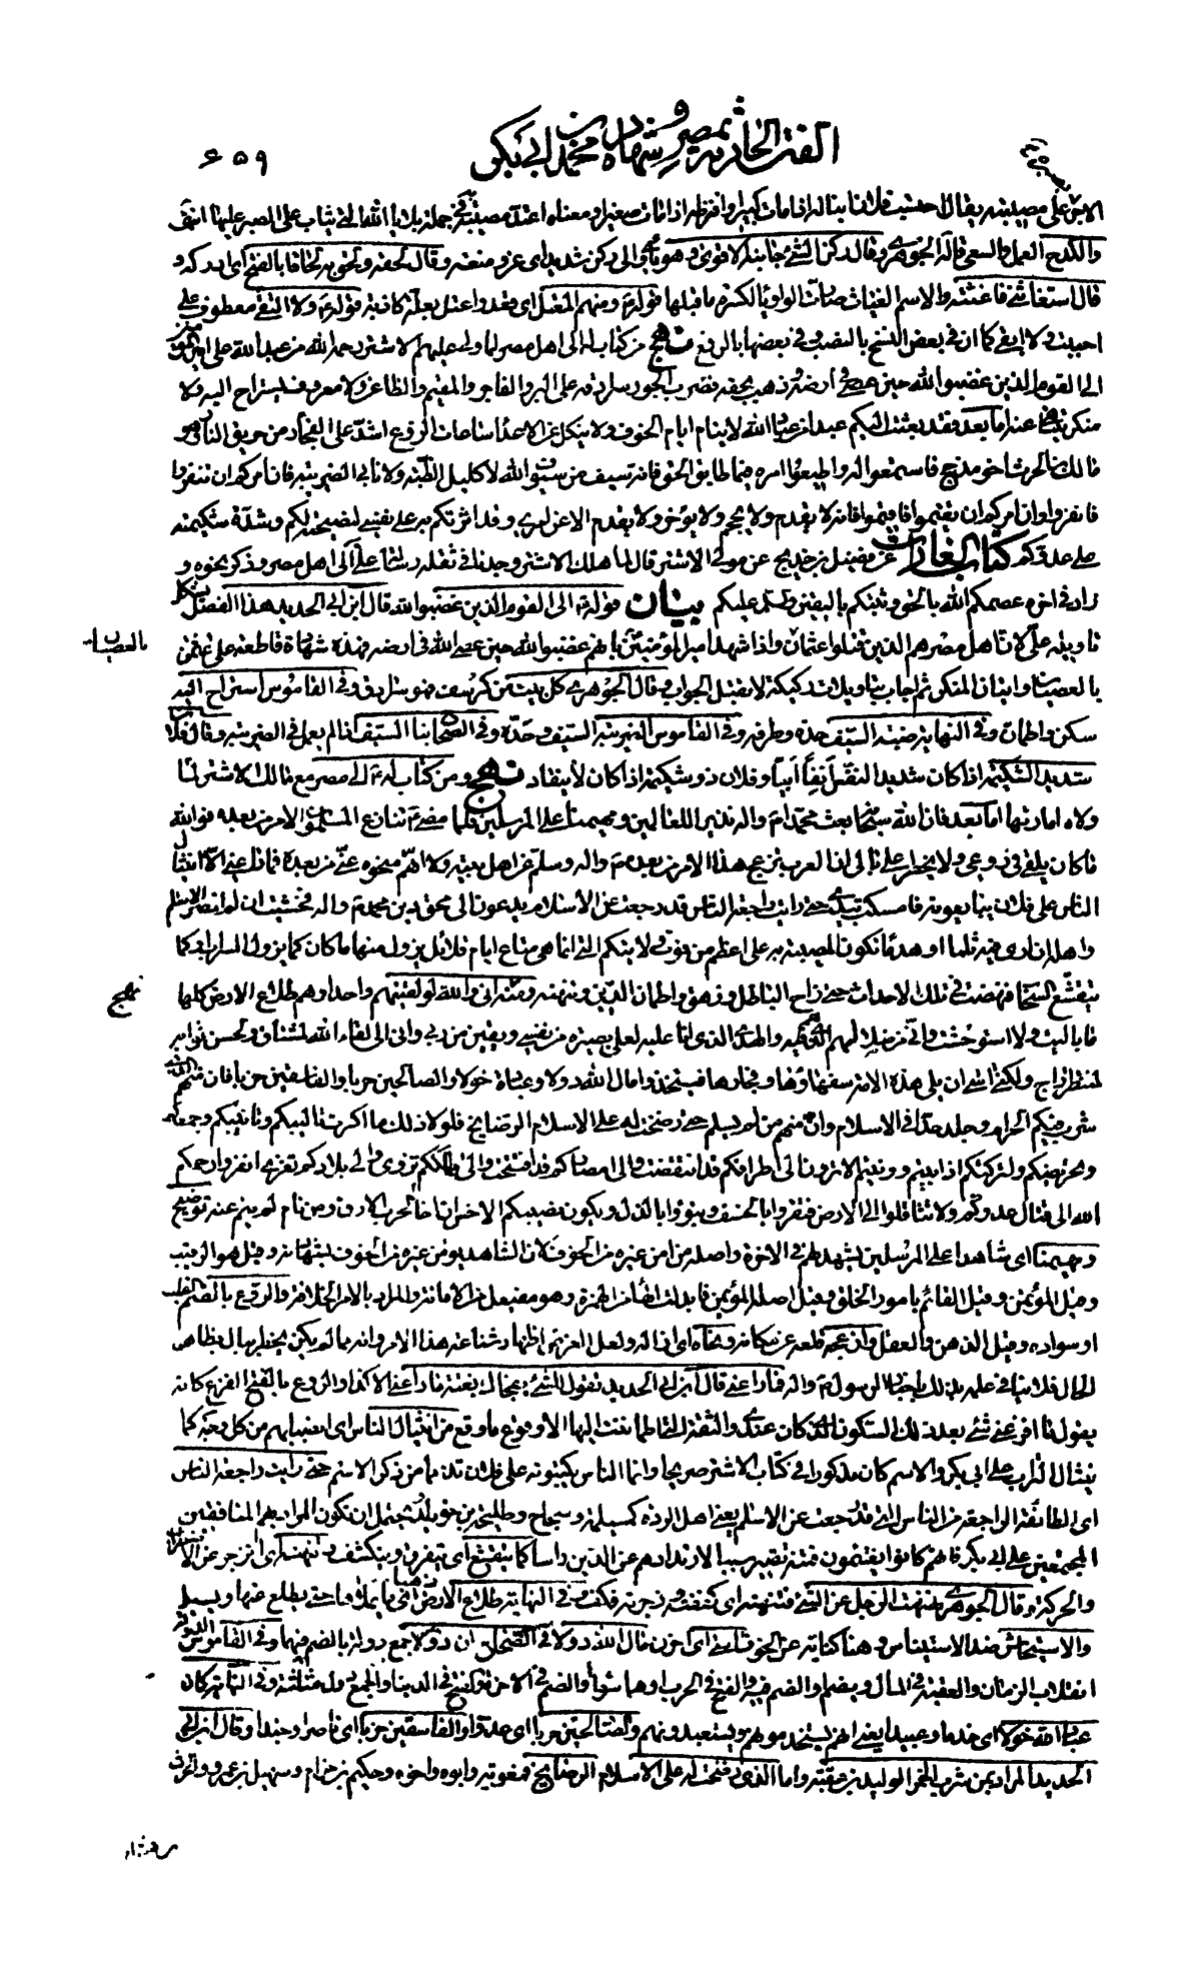 الفتن الحادثة بمصر و شهادة محمد بن ابي بكر
٦٥٩
الاجر على مصيبته يقال احتسب فلان ابنا له اذا مات كبيرا وافترطه اذا مات صغيرا ومعناه اعتد مصيبته في جملة بلايا الله التي يثاب على الصبر عليها انتهى
والكدح العمل والسعي قاله الجوهري وقال ركن الشيء جانبه الاقوى وهو يأوي الى ركن شديد اي عز ومنعة وقال لحقه ولحق به لحاقا بالفتح اي ادركه و
قال استغاثني فاغثته والاسم الغياث صارت الواو ياء لكسرة ما قبلها قوله ع ومنهم المعتل اي قعد واعتل بعلة كاذبة قوله ع ولا التقي معطوف على
احببت ولا ابقى كما ان في بعض النسخ بالنصب وفي بعضها بالرفع نهج من كتاب له الى اهل مصر لما ولى عليهم الاشتر رحمه الله من عبد الله علي امير المؤمنين
الى القوم الذين غضبوا لله حين عصي في ارضه وذهب بحقه فضرب الجور سرادقه على البر والفاجر والمقيم والظاعن فلا معروف يستراح اليه ولا
منكر يتناهى عنه اما بعد فقد بعثت اليكم عبدا من عباد الله لا ينام ايام الخوف ولا ينكل عن الاعداء ساعات الروع اشد على الفجار من حريق النار وهو
مالك بن الحرث اخو مذحج فاسمعوا له واطيعوا امره فيما طابق الحق فانه سيف من سيوف الله لا كليل الظبة ولا نابي الضريبة فان امركم ان تنفروا
فانفروا وان امركم ان تقيموا فاقيموا فانه لا يقدم ولا يحجم ولا يؤخر ولا يقدم الا عن امري وقد اثرتكم به على نفسي لنصيحته لكم وشدة شكيمته
على عدوكم كتاب الغارات عن فضيل بن خديج عن مولى الاشتر قال لما هلك الاشتر وجدنا في ثقله رسالة علي الى اهل مصر وذكر نحوه و
زاد في اخره عصمكم الله بالحق وثبتكم باليقين والسلام عليكم بيان قوله ع الى القوم الذين غضبوا لله قال ابن ابي الحديد هذا الفصل يشكل
تاويله علي لان اهل مصر هم الذين قتلوا عثمان واذا شهد امير المؤمنين بانهم غضبوا لله حين عصي الله في ارضه فهذه شهادة قاطعة على عثمن
بالعصيان
بالعصيان واتيان المنكر ثم اجاب بتاويلات ركيكة لا تقبل الجواب وقال الجوهري كل بيت من كرسف فهو سرادق وفي القاموس استراح اليه
سكن واطمان وفي النهاية ضبة السيف حده وطرفه وفي القاموس الضريبة السيف وحده وفي الصحاح نبا السيف اذا لم يعمل في الضريبة وقال فلان
شديد الشكيمة اذا كان شديد النفس انفا ابيا وفلان ذو شكيمة اذا كان لا ينقاد نهج ومن كتاب له ع الى مصر مع مالك الاشتر لما
ولاه امارتها اما بعد فان الله سبحانه بعث محمدا ص واله نذيرا للعالمين ومهيمنا على المرسلين فلما مضى ع تنازع المسلمون الامر من بعده فو الله
ما كان يلقى في روعي ولا يخطر على بالي ان العرب تزعج هذا الامر من بعده ص واله وسلم عن اهل بيته ولا انهم منحوه عني من بعده فما راعني الا انثيال
الناس على فلان يبايعونه فامسكت يدي حتى رايت راجعة الناس قد رجعت عن الاسلام يدعون الى محق دين محمد ص واله فخشيت ان لم انصر الاسلام
واهله ان ارى فيه ثلما او هدما تكون المصيبة به علي اعظم من فوت ولايتكم التي انما هي متاع ايام قلائل يزول منها ما كان كما يزول السراب او كما
يتقشع السحاب فنهضت في تلك الاحداث حتى زاح الباطل وزهق واطمان الدين وتنهنه ومنه اني والله لو لقيتهم واحدا وهم طلاع الارض كلها
نهج
ما باليت ولا استوحشت واني من ضلالهم الذي هم فيه والهدى الذي انا عليه لعلى بصيرة من نفسي ويقين من ربي واني الى لقاء الله لمشتاق ولحسن ثوابه
لمنتظر راج ولكنني اسى ان يلي هذه الامة سفهاؤها وفجارها فيتخذوا مال الله دولا وعباده خولا والصالحين حربا والفاسقين حزبا فان منهم الذي
شرب فيكم الحرام وجلد حدا في الاسلام وان منهم من لم يسلم حتى رضخت له على الاسلام الرضايخ فلولا ذلك ما اكثرت تاليبكم وتانيبكم وجمعكم
وتحريضكم ولتركتكم اذ ابيتم وونيتم الا ترون الى اطرافكم قد انتقصت والى امصاركم قد افتتحت والى ممالككم تزوى والى بلادكم تغزى انفروا رحمكم
الله الى قتال عدوكم ولا تثاقلوا الى الارض فتقروا بالخسف وتبوؤا بالذل ويكون نصيبكم الاخس ان اخا الحرب الارق ومن نام لم ينم عنه توضيح
ومهيمنا اي شاهدا على المرسلين يشهد لهم في الاخرة واصله من امن غيره من الخوف لان الشاهد يؤمن غيره من الخوف بشهادته وقيل هو الرقيب
وقيل المؤتمن وقيل القائم بامور الخلق وقيل اصله المؤيمن فابدلت الهاء من الهمزة وهو مفيعل من الامانة والمراد بالامر الخلافة والروع بالضم القلب
او سواده وقيل الذهن والعقل وازعجه قلعه عن مكانه ونحاه اي ازاله ولعل الغرض اظهار شناعة هذا الامر وانه مما لم يكن يخطر ببال بظاهر
الحال فلا ينافي علمه بذلك باخبار الرسول ص واله فما راعني قال ابن ابي الحديد تقول للشيء يفجاك بغتة ما راعني الا كذا والروع بالفتح الفزع كانه
يقول ما افزعني شيء بعد ذلك السكون الذي كان عندي والثقة التي اطمأننت اليها الا وقوع ما وقع من انثيال الناس اي انصبابهم من كل وجه كما
ينثال التراب على ابي بكر والاسم كان مذكورا في كتاب الاشتر صريحا وانما الناس يكتبونه على فلان تذمما من ذكر الاسم حتى رايت راجعة الناس
اي الطائفة الراجعة من الناس التي قد رجعت عن الاسلام يعني اهل الردة كمسيلمة وسجاح وطليحة بن خويلد ويحتمل ان تكون المراد بهم المنافقين
المجتمعين على ابي بكر فانهم كانوا يغتنمون فتنة تصير سببا لارتدادهم عن الدين راسا كما يتقشع اي يتفرق وينكشف وتنهنه اي انزجر عن الاضطراب
والحركة وقال الجوهري نهنهت الرجل عن الشيء فتنهنه اي كففته وزجرته فكف وفي النهاية طلاع الارض ذهبا اي ما يملاها حتى يطلع عنها ويسيل
والاستيحاش ضد الاستيناس وهنا كناية عن الخوف اسى اي احزن مال الله دولا في الصحاح ان دولا جمع دولة بالضم فيهما وفي القاموس الدولة
انقلاب الزمان والعقبة في المال ويضم او الضم فيه والفتح في الحرب او هما سواء او الضم في الاخرة والفتح في الدنيا والجمع دول مثلثة وفي النهاية كان
عباد الله خولا اي خدما وعبيدا يعني انهم يستخدمونهم ويستعبدونهم والصالحين حربا اي عدوا والفاسقين حزبا اي ناصرا وجندا وقال ابن ابي
الحديد المراد بمن شرب الخمر الوليد بن عقبة واما الذي رضخت له على الاسلام الرضايخ فمعوية وابوه واخوه وحكيم بن حزام وسهيل بن عمرو والحرث
بن هشام